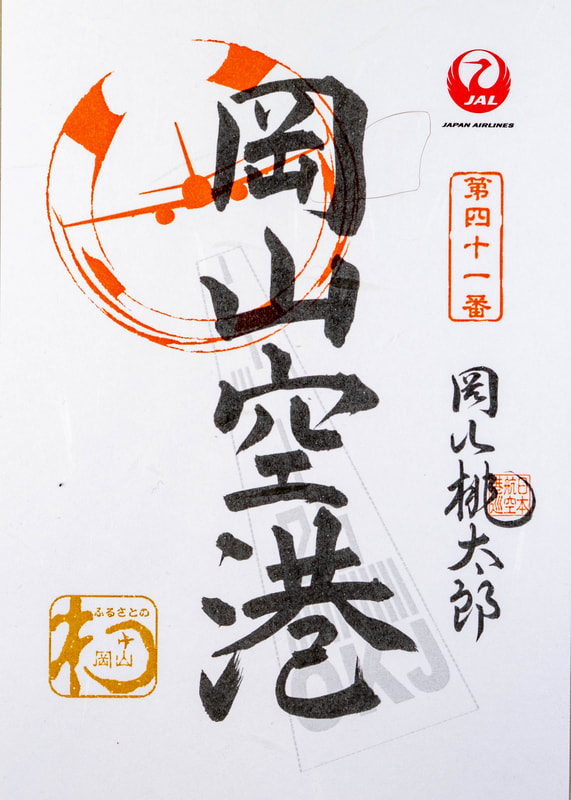 JAL
JAPAN AIRLINES
第四十一番
岡山桃太郎
日本
航空
岡山空港
OKJ
ふるさとの
岡山